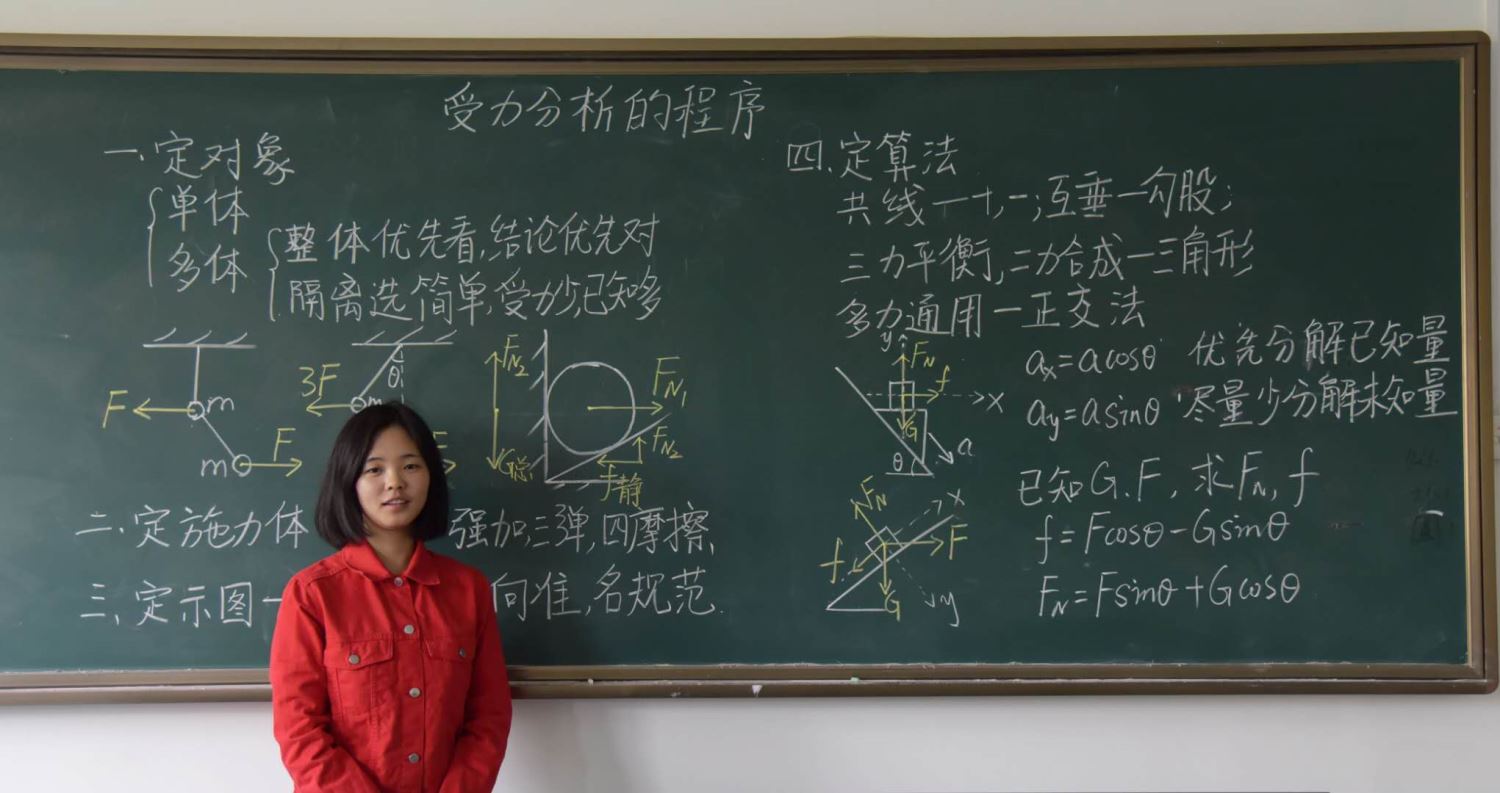 受力分析的程序
一.定对象
单体
多体
整体优先看,结论优先对
隔离选简单,受力少,已知多
F m
m F
3F θ m
F_N2 G总
F_N1
F_N2
f静
二.定施力体 强加,三弹,四摩擦,
三、定示图一 向准,名规范.
四.定算法
共线一十,一;互垂一勾股;
三力平衡,二力合成一三角形
多力通用一正交法
y F_N f x
G
θ a
a_x=acosθ 优先分解已知量
a_y=asinθ 尽量少分解未知量
F_N x
f F
G y
已知G.F,求F_N,f
f=Fcosθ-Gsinθ
F_N=Fsinθ+Gcosθ